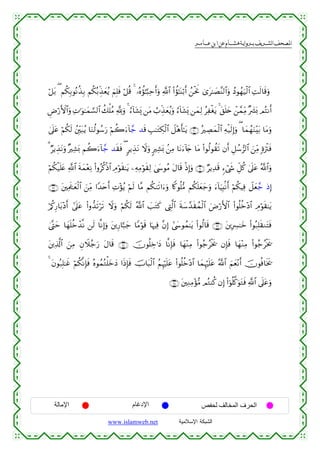 المصحف الشريف برواية هشام عن ابن عامر
وَقَالَتِ ٱلۡيَهُودُ وَٱلنَّصَٰرَىٰ نَحۡنُ أَبۡنَٰٓؤُاْ ٱللَّهِ وَأَحِبَّٰٓؤُهُۥۚ قُلۡ فَلِمَ يُعَذِّبُكُم بِذُنُوبِكُمۖ بَلۡ
أَنتُم بَشَرٞ مِّمَّنۡ خَلَقَۚ يَغۡفِرُ لِمَن يَشَآءُ وَيُعَذِّبُ مَن يَشَآءُۚ وَلِلَّهِ مُلۡكُ ٱلسَّمَٰوَٰتِ وَٱلۡأَرۡضِ
وَمَا بَيۡنَهُمَاۖ وَإِلَيۡهِ ٱلۡمَصِيرُ يَٰٓأَهۡلَ ٱلۡكِتَٰبِ قَد جَّآءَكُمۡ رَسُولُنَا يُبَيِّنُ لَكُمۡ عَلَىٰ
فَتۡرَةٖ مِّنَ ٱلرُّسُلِ أَن تَقُولُواْ مَا جَآءَنَا مِنۢ بَشِيرٖ وَلَا نَذِيرٖۖ فَقَد جَّآءَكُم بَشِيرٞ وَنَذِيرٞۗ
وَٱللَّهُ عَلَىٰ كُلِّ شَيۡءٖ قَدِيرٞ وَإِذۡ قَالَ مُوسَىٰ لِقَوۡمِهِۦ يَٰقَوۡمِ ٱذۡكُرُواْ نِعۡمَةَ ٱللَّهِ عَلَيۡكُمۡ
إِذ جَّعَلَ فِيكُمۡ أَنۢبِيَآءَ وَجَعَلَكُم مُّلُوكٗا وَءَاتَىٰكُم مَّا لَمۡ يُؤۡتِ أَحَدٗا مِّنَ ٱلۡعَٰلَمِينَ
يَٰقَوۡمِ ٱدۡخُلُواْ ٱلۡأَرۡضَ ٱلۡمُقَدَّسَةَ ٱلَّتِي كَتَبَ ٱللَّهُ لَكُمۡ وَلَا تَرۡتَدُّواْ عَلَىٰٓ أَدۡبَارِكُمۡ
فَتَنقَلِبُواْ خَٰسِرِينَ قَالُواْ يَٰمُوسَىٰٓ إِنَّ فِيهَا قَوۡمٗا جَبَّارِينَ وَإِنَّا لَن نَّدۡخُلَهَا حَتَّىٰ
يَخۡرُجُواْ مِنۡهَا فَإِن يَخۡرُجُواْ مِنۡهَا فَإِنَّا دَٰخِلُونَ قَالَ رَجُلَانِ مِنَ ٱلَّذِينَ
يَخَافُونَ أَنۡعَمَ ٱللَّهُ عَلَيۡهِمَا ٱدۡخُلُواْ عَلَيۡهِمُ ٱلۡبَابَ فَإِذَا دَخَلۡتُمُوهُ فَإِنَّكُمۡ غَٰلِبُونَۚ
وَعَلَى ٱللَّهِ فَتَوَكَّلُوٓاْ إِن كُنتُم مُّؤۡمِنِينَ
الحرف المخالف لحفص الإدغام الإمالة
الشبكة الإسلامية www.islamweb.net